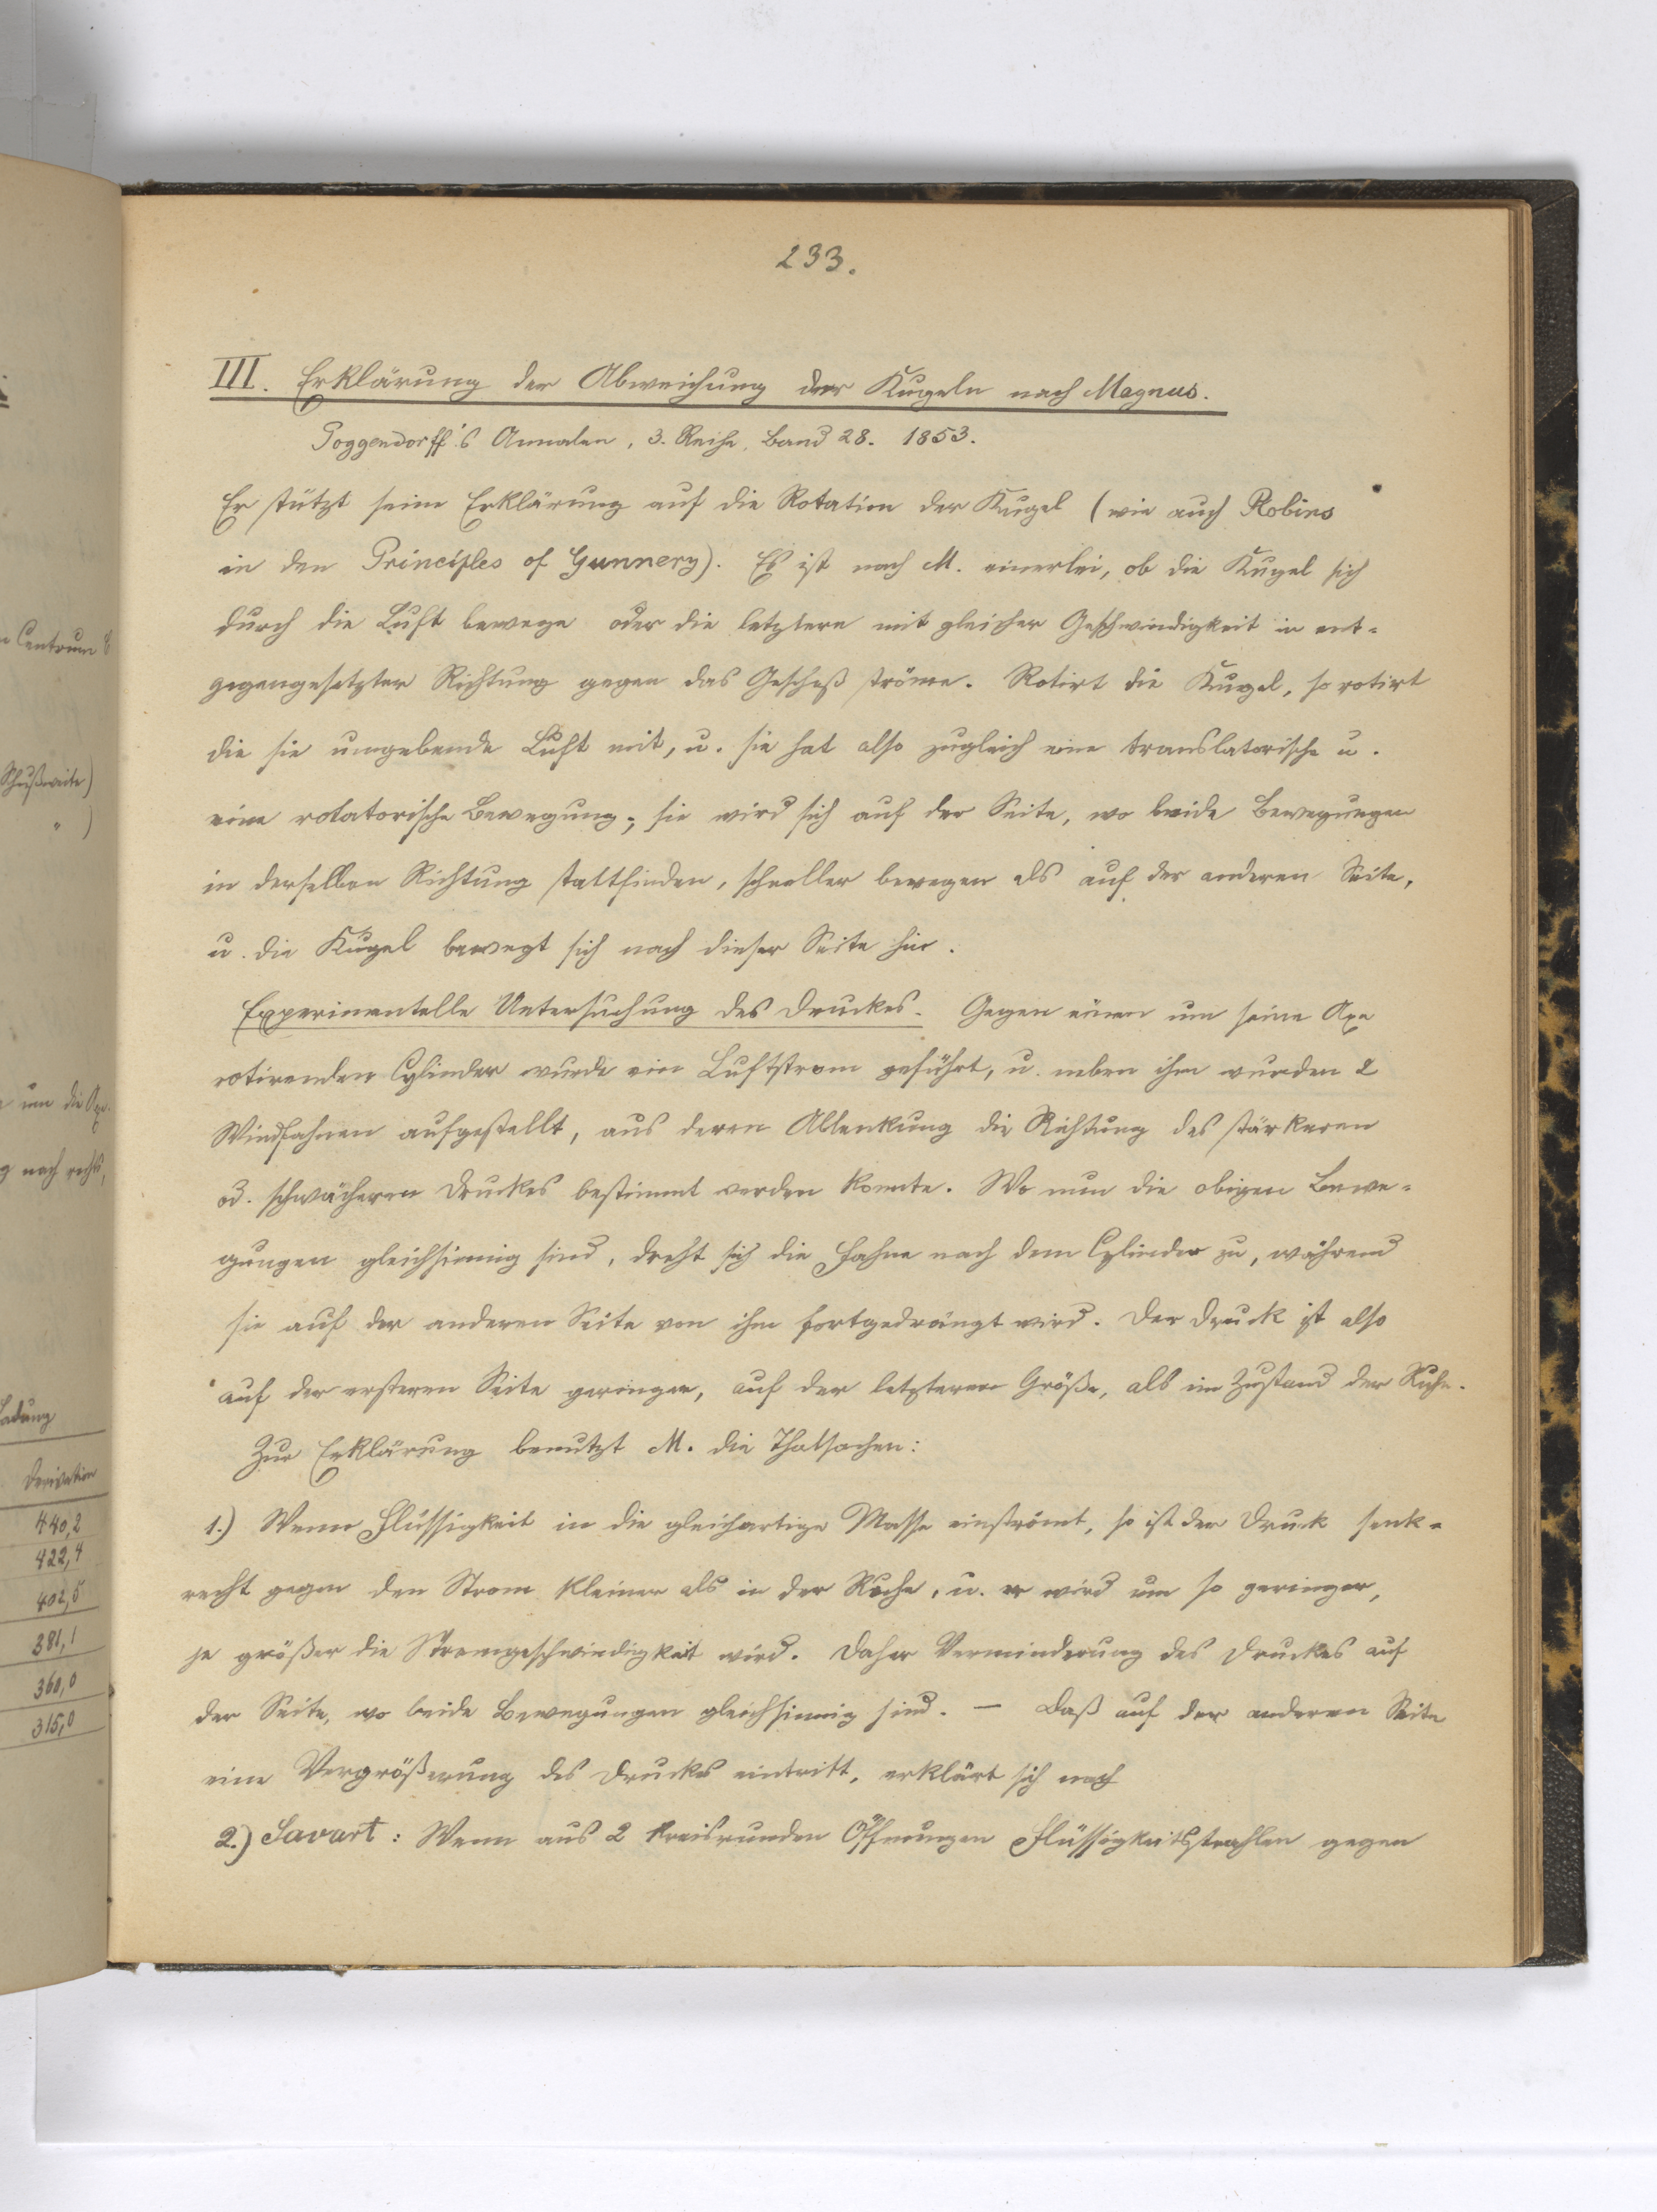 233.
III. Erklärung der Abweichung der Kugeln nach Magnus.
Poggendorff's Annalen, 3. Reihe, Band 28. 1853.
Er stützt seine Erklärung auf die Rotation der Kugel (wie auch Robins
in den Principles of Gunnery). Es ist nach M. einerlei, ob die Kugel sich
durch die Luft bewege oder die letztere mit gleicher Geschwindigkeit in ent-
gegengesetzter Richtung gegen das Geschoß ströme. Rotirt die Kugel, so rotirt
die sie umgebende Luft mit, u. sie hat also zugleich eine translatorische u.
eine rotatorische Bewegung; sie wird sich auf der Seite, wo beide Bewegungen
in derselben Richtung stattfinden, schneller bewegen als auf der anderen Seite,
u. die Kugel bewegt sich nach dieser Seite hin.
Experimentelle Untersuchung des Druckes. Gegen einen um seine Axe
rotirenden Cylinder wurde ein Luftstrom geführt, u. neben ihm wurden 2
Windfahnen aufgestellt, aus deren Ablenkung die Richtung des stärkeren
od. schwächeren Druckes bestimmt werden konnte. Wo nun die obigen Bewe-
gungen gleichsinnig sind, dreht sich die Fahne nach dem Cylinder zu, während
sie auf der anderen Seite von ihm fortgedrängt wird. Der Druck ist also
auf der ersteren Seite geringer, auf der letzteren Größe, als im Zustand der Ruhe.
Zur Erklärung benutzt M. die Thatsachen:
1.) Wenn Flüssigkeit in die gleichartige Masse einströmt, so ist der Druck senk-
recht gegen den Strom kleiner als in der Ruhe, u. er wird um so geringer,
je größer die Stromgeschwindigkeit wird. Daher Verminderung des Druckes auf
der Seite, wo beide Bewegungen gleichsinnig sind. — Daß auf der anderen Seite
eine Vergrößerung des Druckes eintritt, erklärt sich nach
2.) Savart: Wenn aus 2 kreisrunden Öffnungen Flüssigkeitsstrahlen gegen
Centrum
Schußweite)
" )
um die Axe.
nach rechts,
Ladung
Derivation
440,2
422,4
402,5
381,1
360,0
315,0